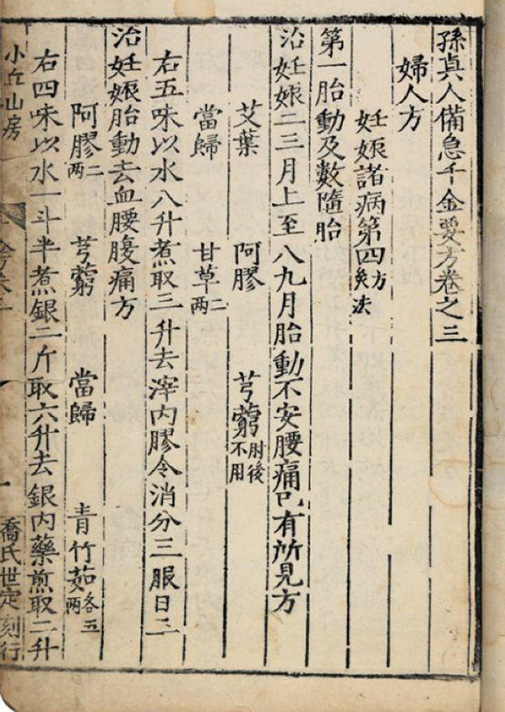 孫真人備急千金要方卷之三
婦人方
妊娠諸病第四方灸法
第一胎動及數隨胎
治妊娠二三月上至八九月胎動不安腰痛已有所見方
艾葉 阿膠 芎藭肘後不用
當歸 甘草二兩
右五味以水八升煮取三升去滓內膠令消分三服日三
治妊娠胎動去血腰腹痛方
阿膠二兩 芎藭 當歸 青竹茹各五兩
右四味以水一斗半煮銀二斤取六升去銀內藥煎取二升
小丘山房
喬氏世定刻行